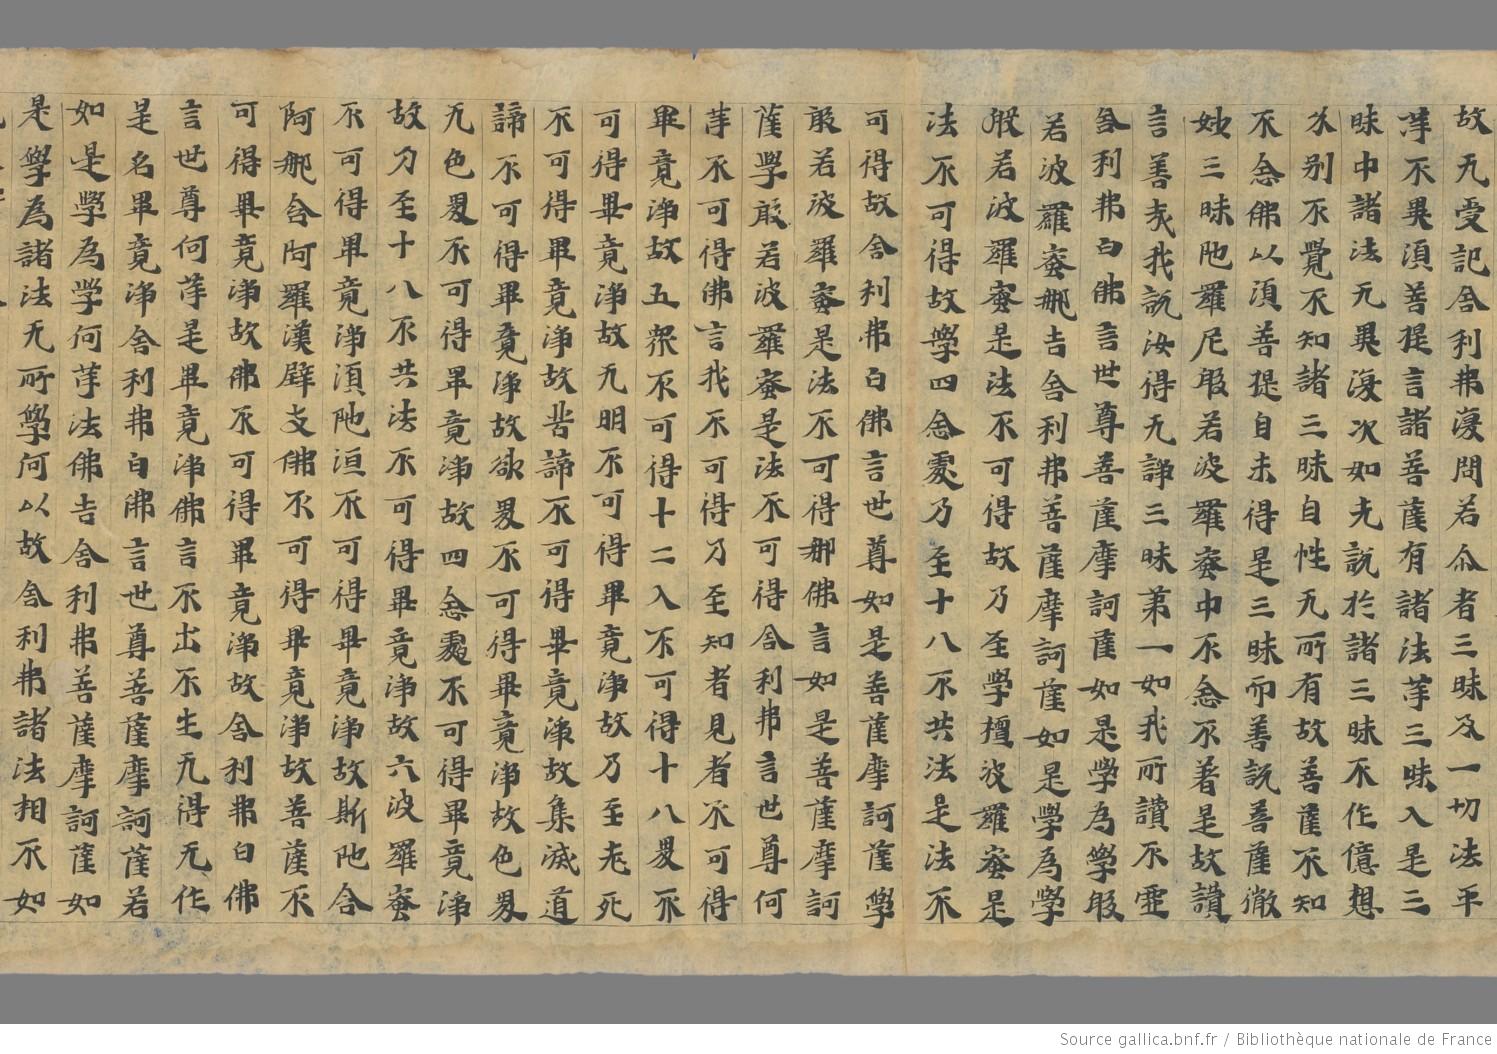 故无受記舍利弗復問若尒者三昧及一切法平
等不異須菩提言諸菩薩有諸法等三昧入是三
昧中諸法无異復次如先說於諸三昧不作憶想
分別不覺不知諸三昧自性无所有故菩薩不知
不念佛以須菩提自未得是三昧而善說菩薩微
妙三昧陁羅尼般若波羅蜜中不念不著是故讃
言善㦲我說汝得无諍三昧第一如我所讃不虛
舍利弗白佛言世尊善薩摩訶薩如是學為學般
若波羅蜜耶告舍利弗菩薩摩訶薩如是學為學
般若波羅蜜是法不可得故乃至學檀波羅蜜是
法不可得故學四念處乃至十八不共法是法不
可得故舍利弗白佛言世尊如是菩薩摩訶薩學
般若波羅蜜是法不可得耶佛言如是菩薩摩訶
薩學般若波羅蜜是法不可得舍利弗言世尊何
等不可得佛言我不可得乃至知者見者不可得
畢竟淨故五衆不可得十二入不可得十八界不
可得畢竟淨故无明不可得畢竟淨故乃至老死
不可得畢竟淨故苦諦不可得畢竟淨故集滅道
諦不可得畢竟淨故欲界不可得畢竟淨故色界
无色界不可得畢竟淨故四念處不可得畢竟淨
故乃至十八不共法不可得畢竟淨故六波羅蜜
不可得畢竟淨須陁洹不可得畢竟淨故斯陁含
阿那含阿羅漢辟支佛不可得畢竟淨故菩薩不
可得畢竟淨故佛不可得畢竟淨故舍利弗白佛
言世尊何等是畢竟淨佛言不出不生无得无作
是名畢竟淨舍利弗白佛言世尊菩薩摩訶薩若
如是學為學何等法佛告舍利弗菩薩摩訶薩如
是學為諸法无所學何以故舍利弗諸法相不如
Source gallica.bnf.fr / Bibliothèque nationale de France